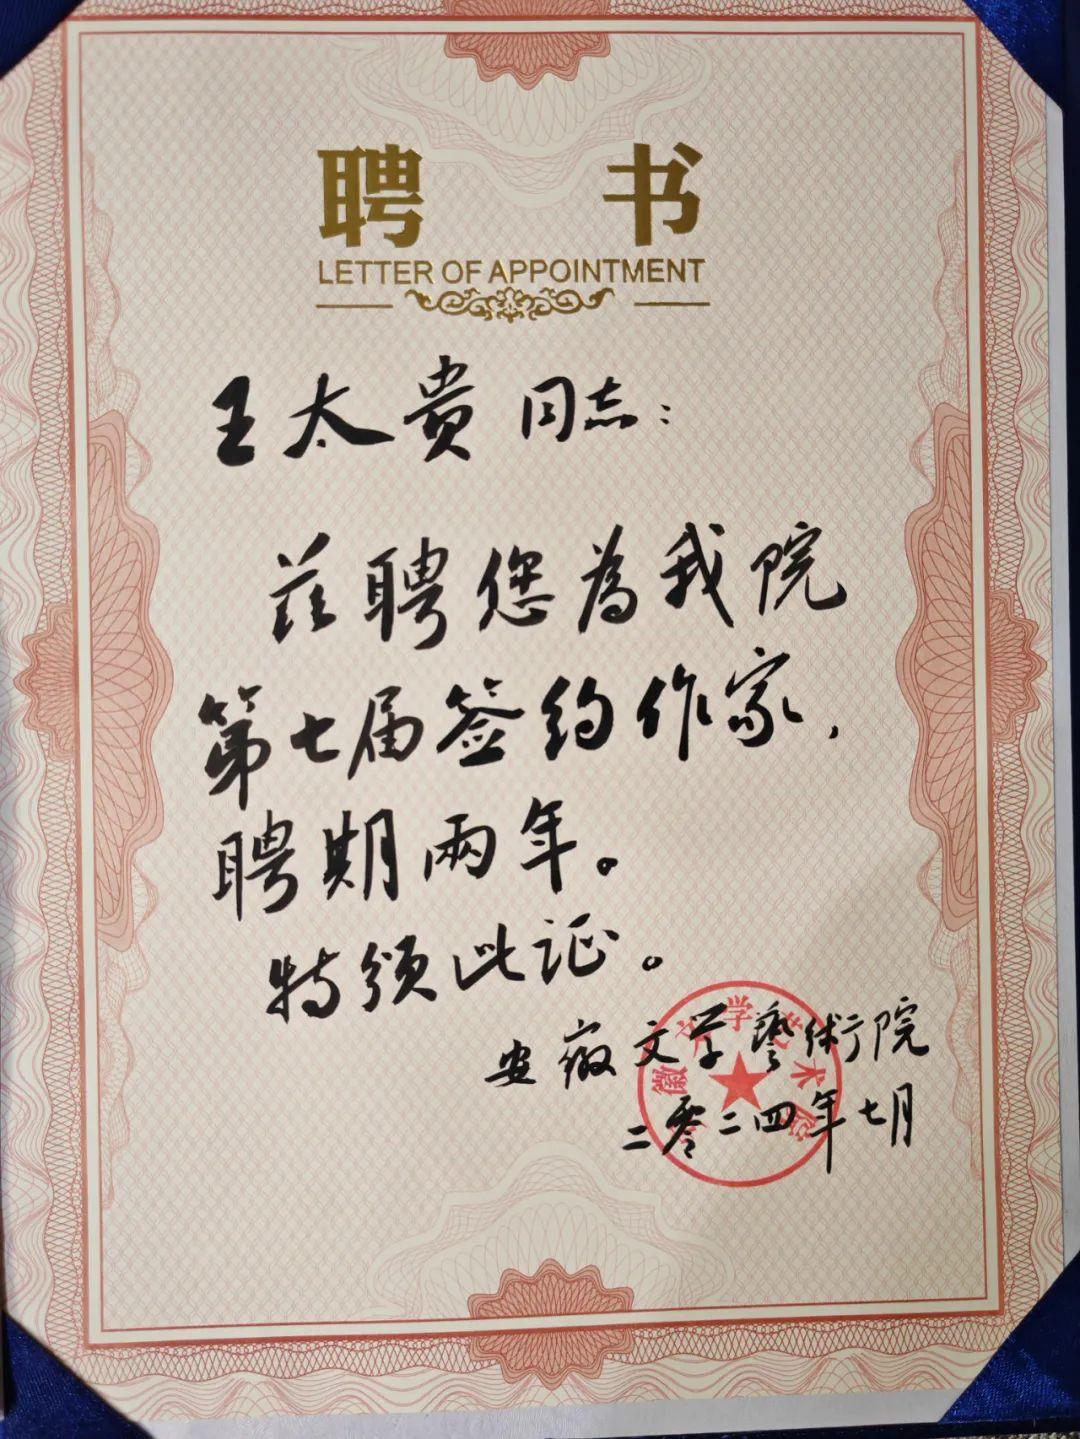 聘书
LETTER OF APPOINTMENT
王太贵同志：
兹聘您為我院
第七届签约作家，
聘期兩年。
特颁此证。
安徽文学藝術院
二零二四年七月
安徽文学艺术院